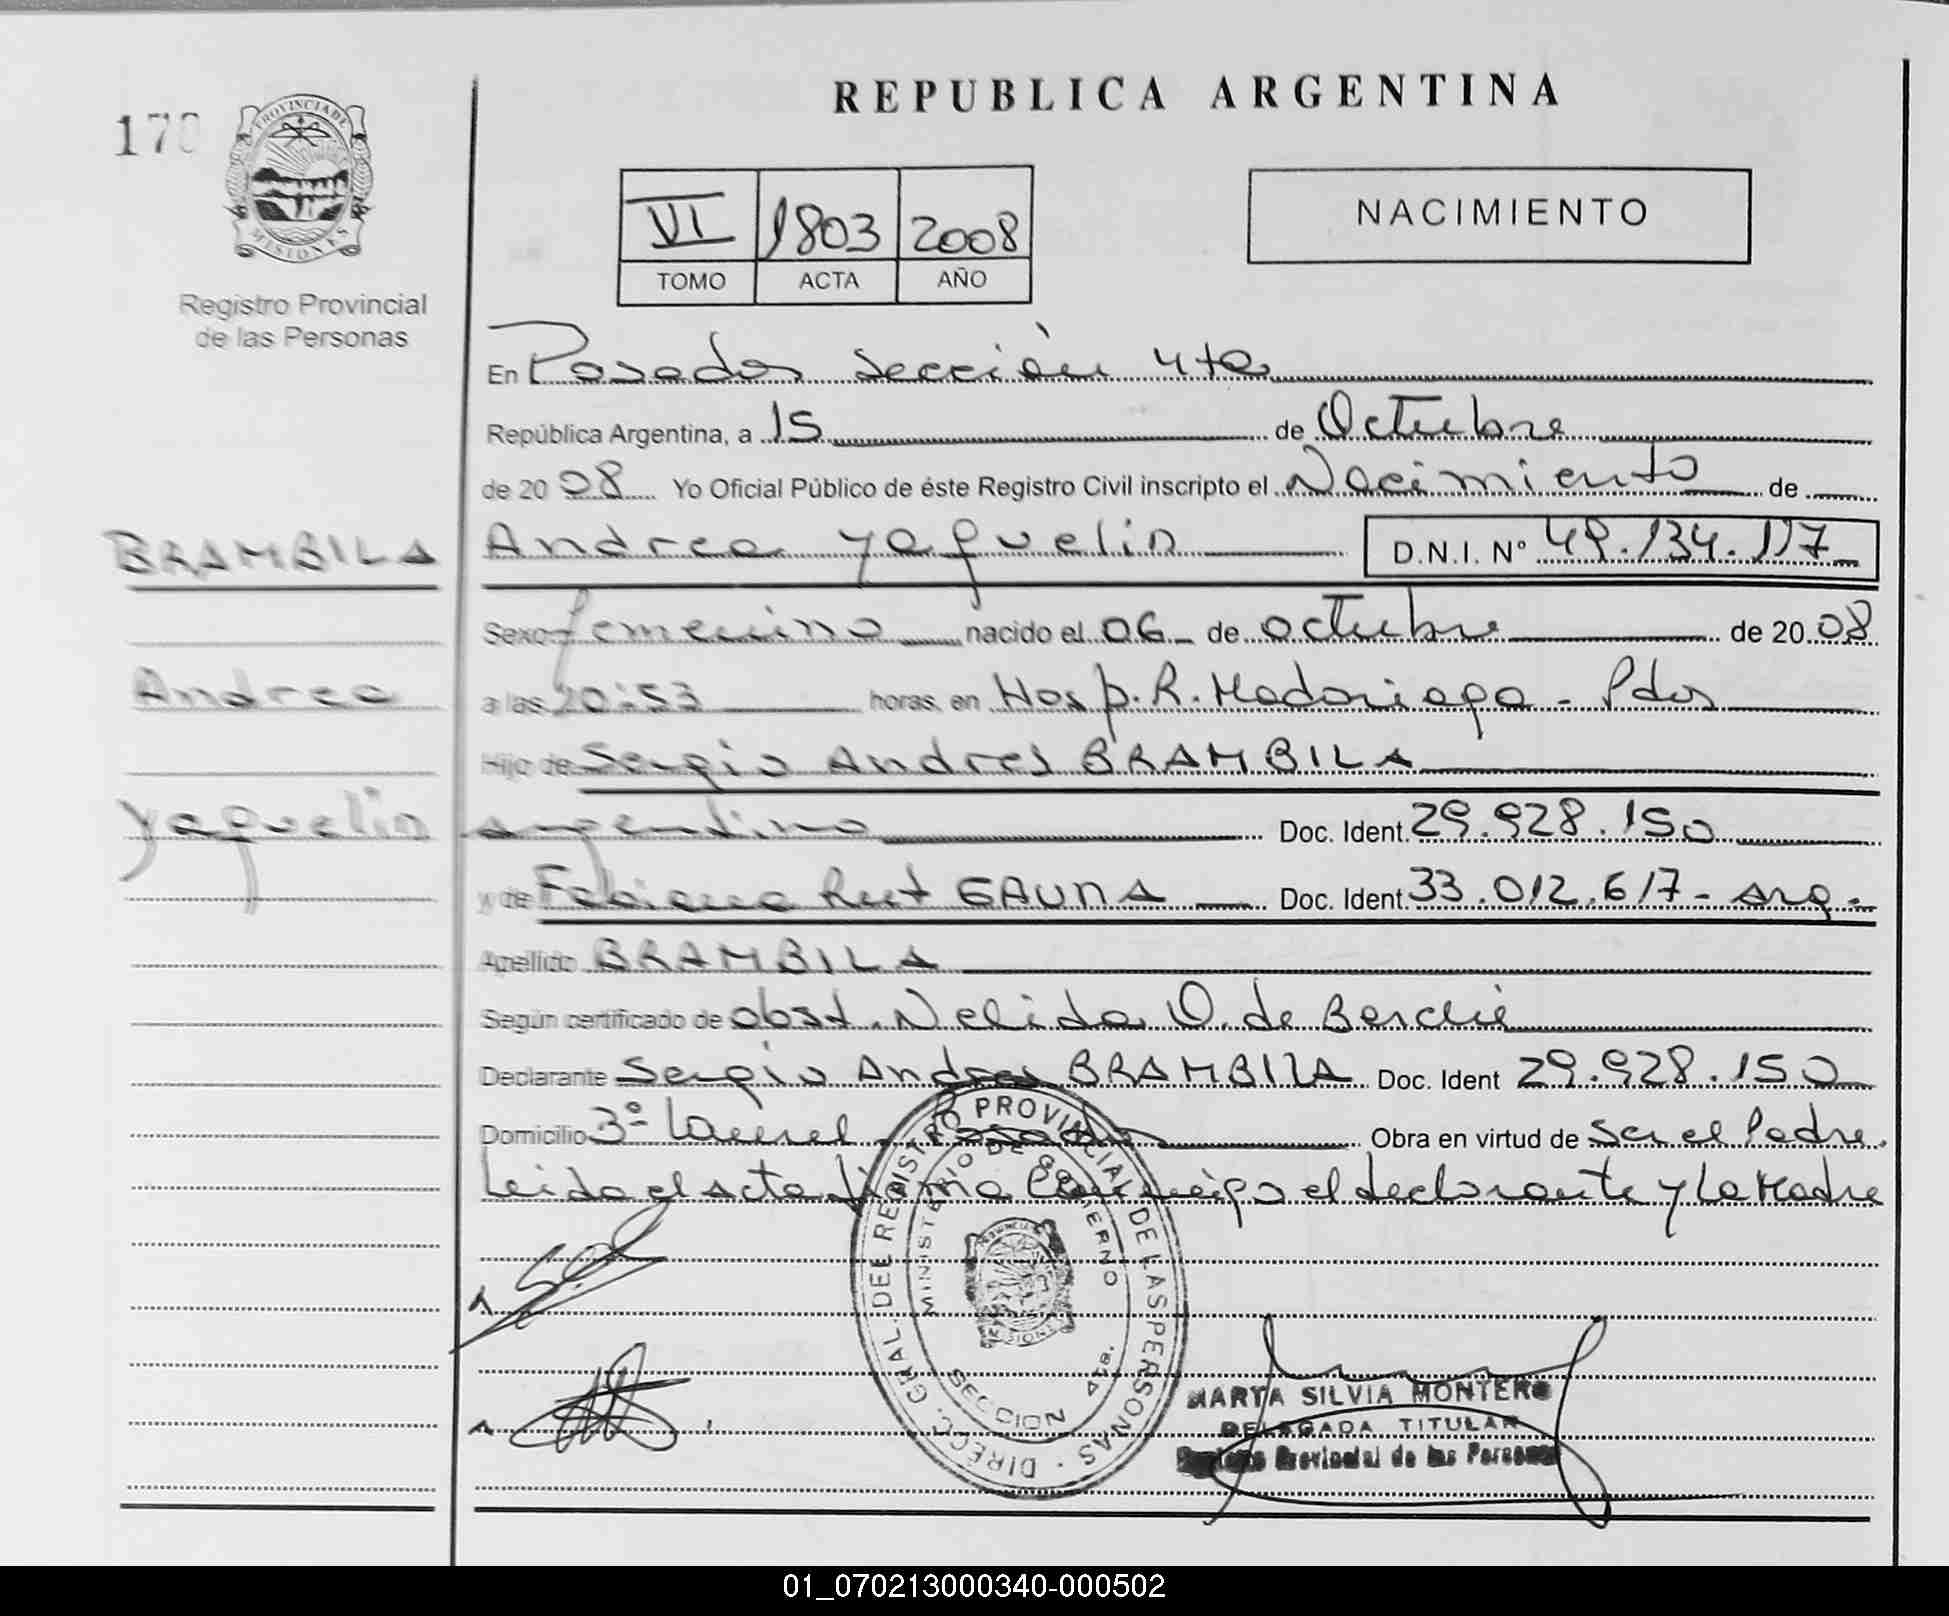 REPUBLICA ARGENTINA
PROVINCIA DE
MISIONES
Registro Provincial
de las Personas
VI 1803 2008
TOMO ACTA AÑO
NACIMIENTO
En Posadas sección 4ta
República Argentina, a 15 de Octubre
de 2008 Yo Oficial Público de éste Registro Civil inscripto el Nacimiento de
BRAMBILA
Andrea Yaquelin D.N.I. N° 49.134.117
Sexo femenino nacido el 06 de octubre de 2008
Andrea
a las 20:53 horas, en Hosp. R. Madariaga - Pdas
Hijo de Sergio Andres BRAMBILA
Yaquelin
argentino Doc. Ident. 29.928.150
y de Fabiana Rut GAUNA Doc. Ident. 33.012.617 - arg.
Apellido BRAMBILA
Según certificado de obst. Nelida O. de
Declarante Sergio Andres BRAMBILA Doc. Ident 29.928.150
Domicilio 3° Laurel - Posadas Obra en virtud de Ser el Padre.
Leida el acta firma conmigo el declarante y la Madre
DIRECC. GRAL. DEL REGISTRO PROVINCIAL DE LAS PERSONAS
MINISTERIO DE GOBIERNO
SECCION 4ta.
MISIONES
MARTA SILVIA MONTERO
DELEGADA TITULAR
Registro Provincial de las Personas
01_070213000340-000502